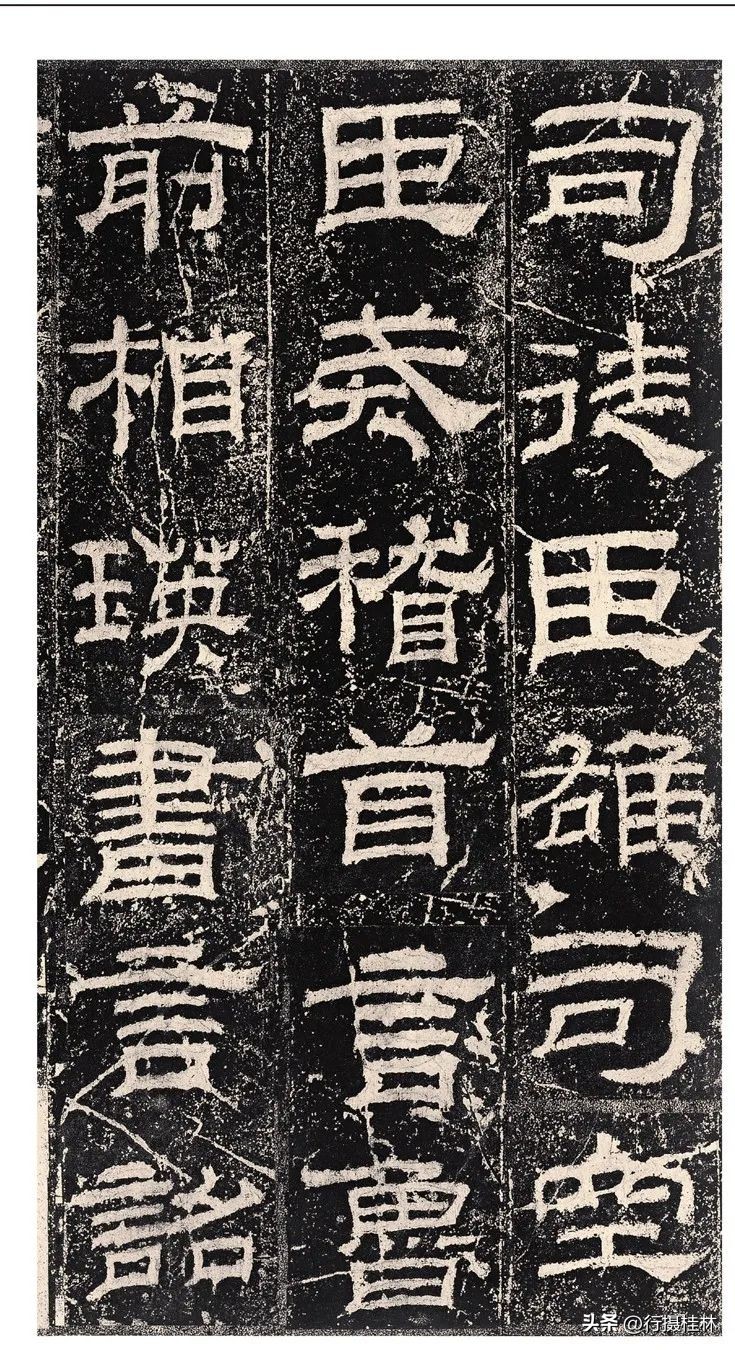 司徒臣雄司空
臣戒稽首言魯
前相瑛書言詔
头条 @行摄桂林